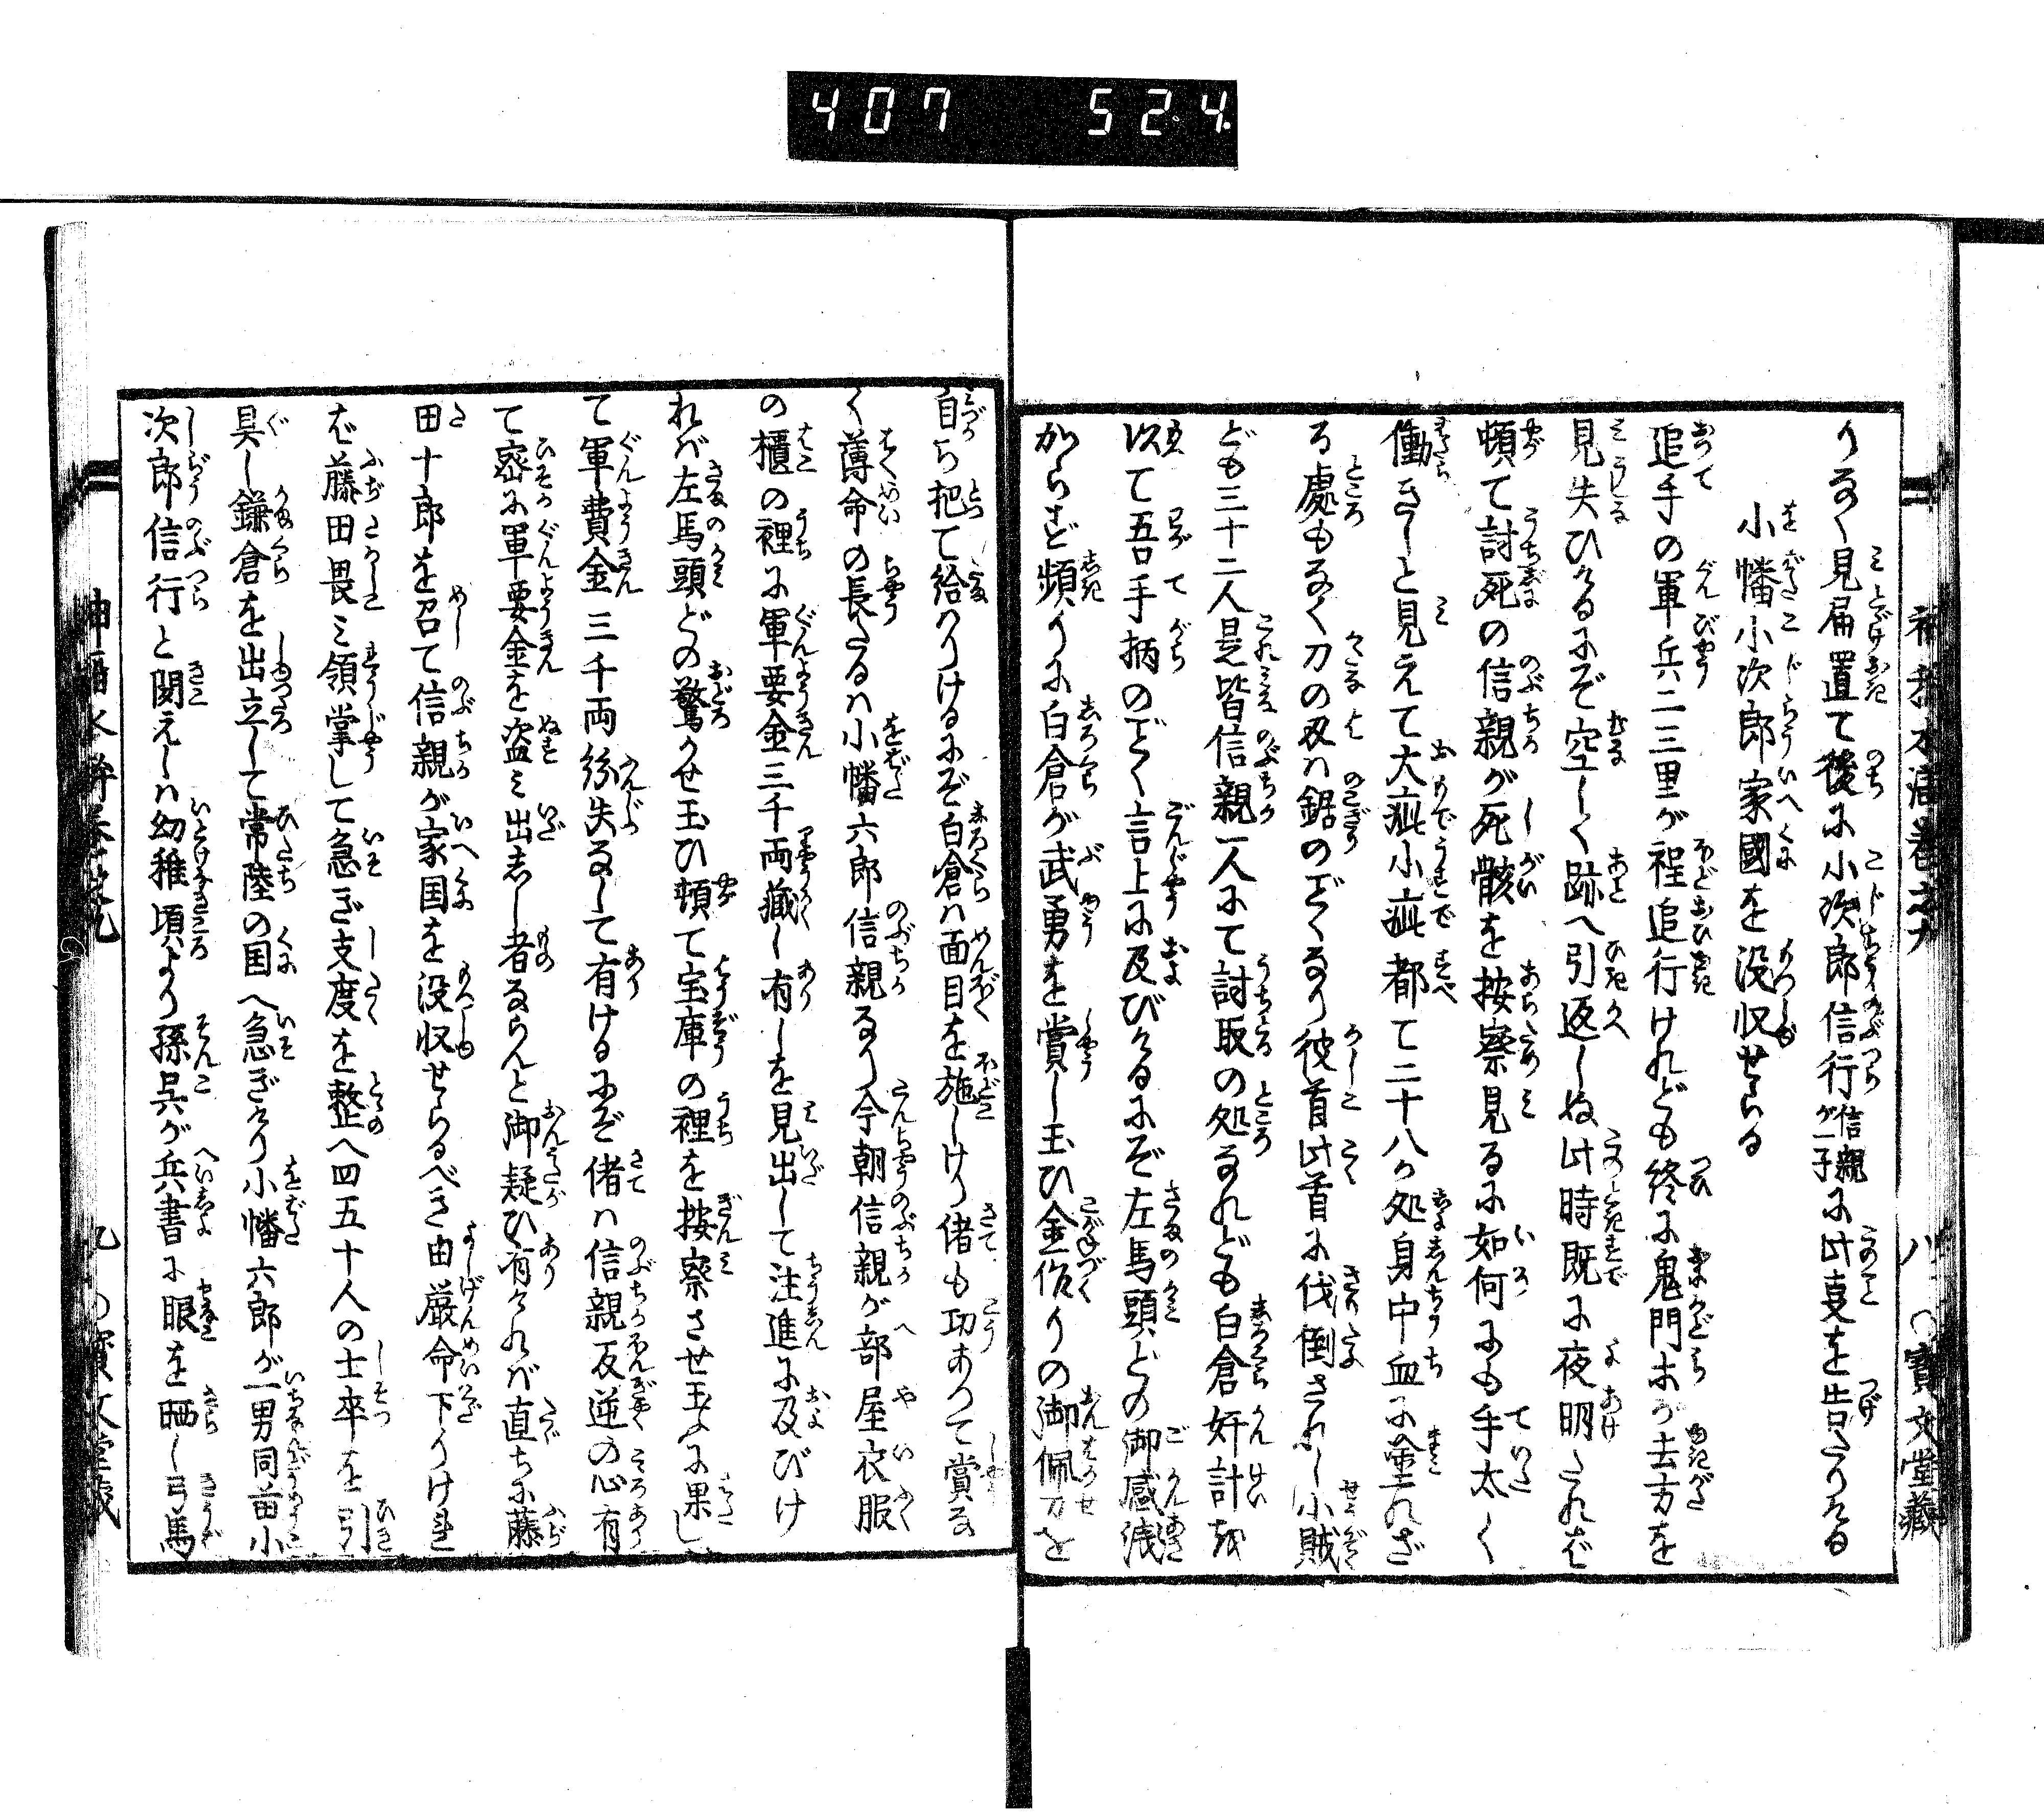 407 52.4.
りなく見届置て後に小次郎信行信親が一子に此事を告たりける
小幡小次郎家國を没収せらる
追手の軍兵二三里が程追行けれども終に鬼門等が去方を
見失ひけるにぞ空しく跡へ引返しぬ此時既に夜明たれば
頓て討死の信親が死骸を按察見るに如何にも手太く
働きしと見えて大疵小疵都て二十八か処身中血に塗れざ
る處もなく刀の刃は鋸のごとくなり彼首此首に伐倒されし小賊
ども三十二人是皆信親一人にて討取の処なれども白倉奸計を
以て吾手柄のごとく言上に及びけるにぞ左馬頭どの御感浅
からず頻りに白倉が武勇を賞し玉ひ金作りの御佩刀を
自ら把て給はりけるにぞ白倉は面目を施しけり偖も功あつて賞な
く薄命の長たるは小幡六郎信親なり今朝信親が部屋衣服
の櫃の裡に軍要金三千両藏し有しを見出して注進に及びけ
れば左馬頭どの驚かせ玉ひ頓て宝庫の裡を按察させ玉ふに果し
て軍費金三千両紛失なして有けるにぞ偖は信親反逆の心有
て密に軍要金を盗み出せし者ならんと御疑ひ有ければ直ちに藤
田十郎を召て信親が家国を没収せらるべき由厳命下りけれ
ば藤田畏み領掌して急ぎ支度を整へ四五十人の士卒を引
具し鎌倉を出立して常陸の国へ急ぎけり小幡六郎が一男同苗小
次郎信行と聞えしは幼稚頃より孫呉が兵書に眼を晒し弓馬
八 〇寶文堂藏
九 〇寶文堂藏